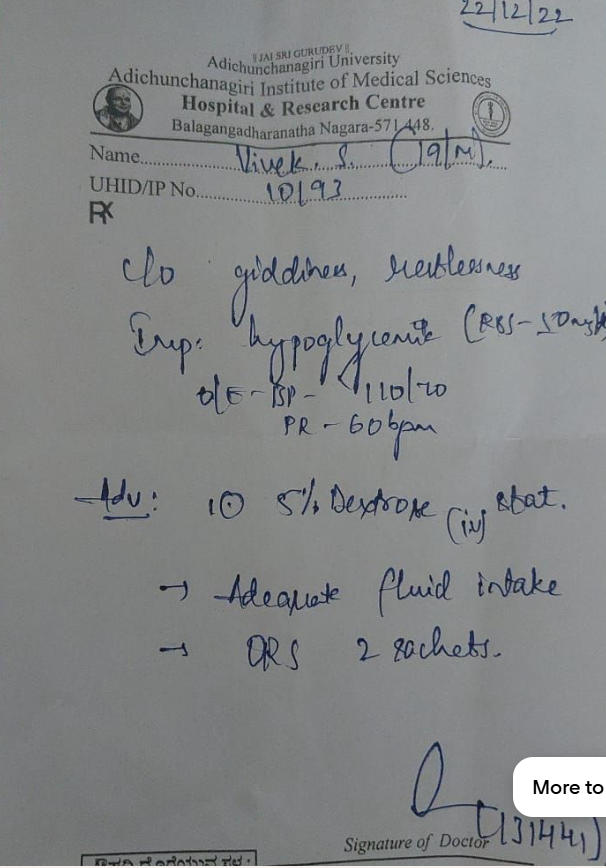 22/12/22
|| JAI SRI GURUDEV ||
Adichunchanagiri University
Adichunchanagiri Institute of Medical Sciences
Hospital & Research Centre
Balagangadharanatha Nagara-571 448.
Name.......Vivek. S. (19/M).
UHID/IP No.......10193
Rx
c/o giddiness, restlessness
Imp: hypoglycemia (RBS-50mg
O/E - BP - 110/70
PR - 60bpm
Adv: 5% Dextrose (iv) stat.
→ Adequate fluid intake
→ ORS 2 sachets.
More to
(131441)
Signature of Doctor